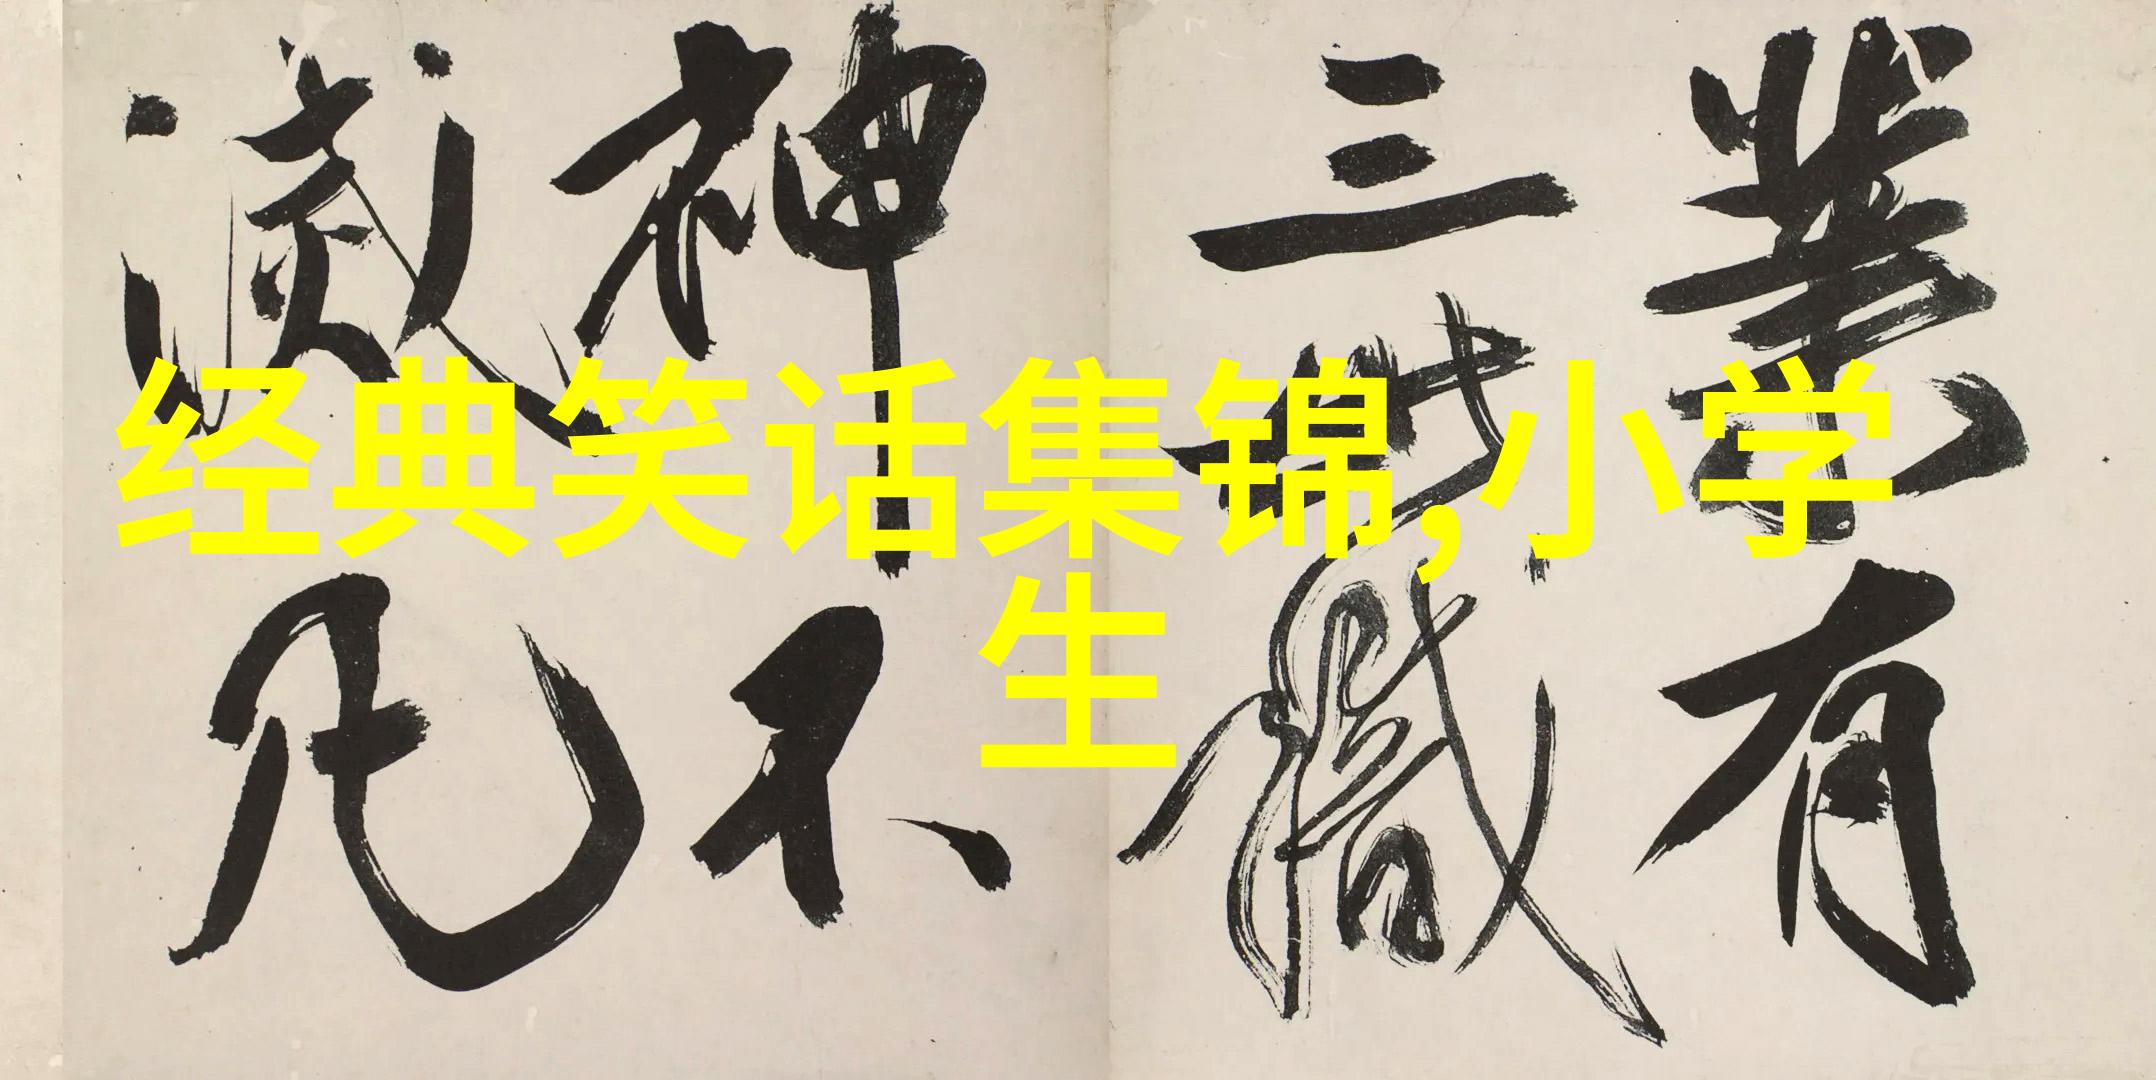 经典笑话集锦,小学
生
業有
三世識
神不
滅凡